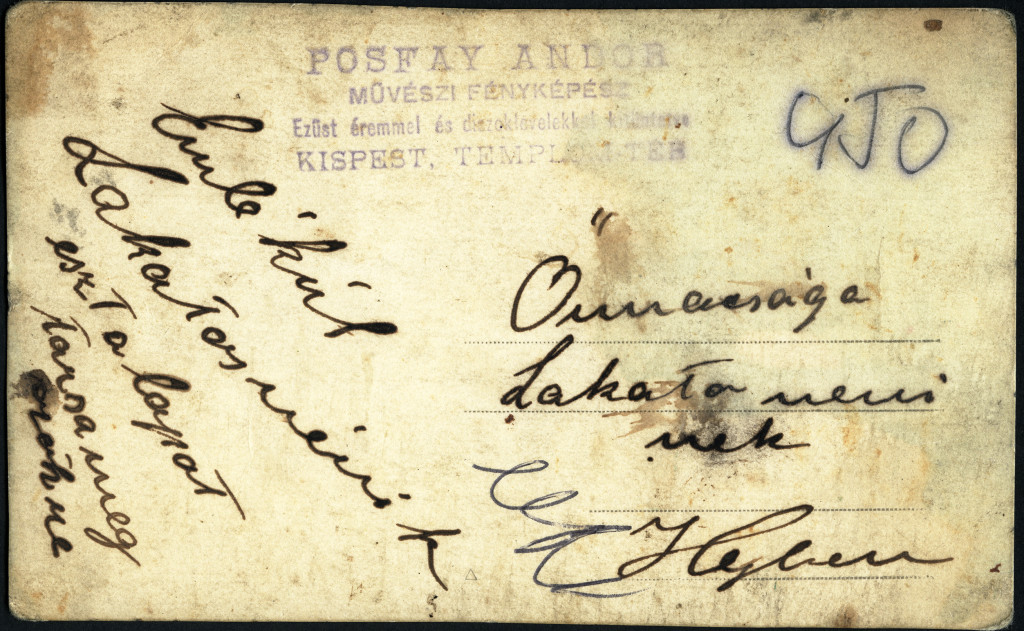 POSFAY ANDOR
MŰVÉSZI FÉNYKÉPÉSZ
Ezüst éremmel és díszoklevelekkel kitüntetve
KISPEST, TEMPLOM TÉR
Emlékül
Lakatos néni k
eszt a lapot
tarsa meg
Őnnacsága
Lakato neni
nek
Helyben